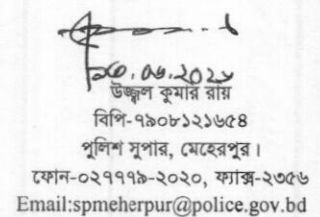 উজ্জ্বল কুমার রায়
বিপি-৭৯০৮১২১৬৫৪
পুলিশ সুপার, মেহেরপুর।
ফোন-০২৭৭৭৯-২০২০, ফ্যাক্স-২৩৫৬
Email:spmeherpur@police.gov.bd